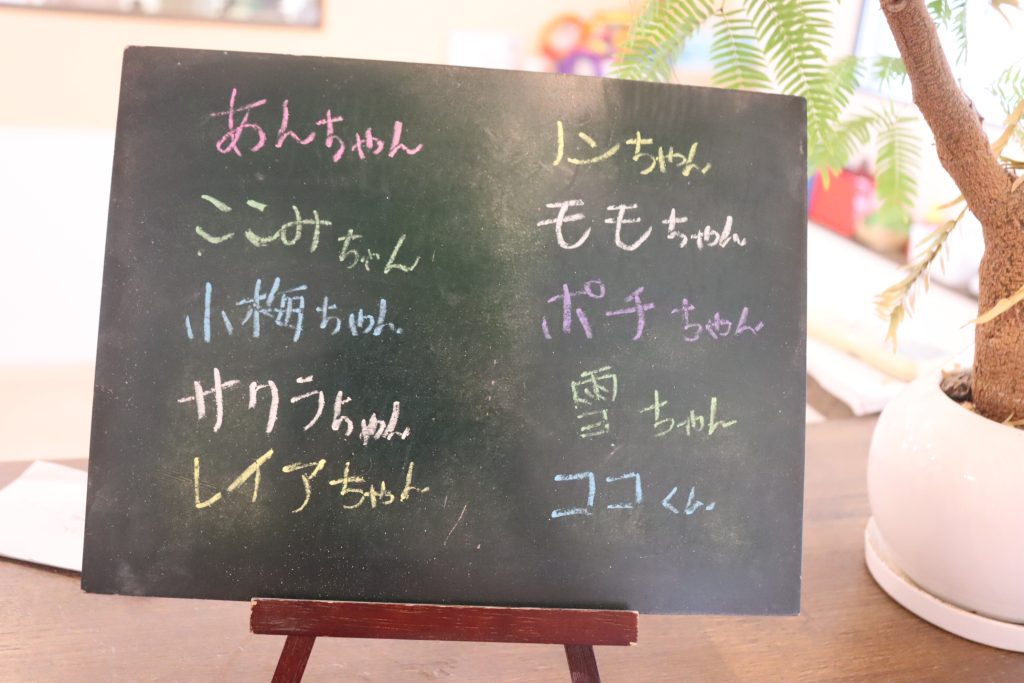 あんちゃん
ここみちゃん
小梅ちゃん
サクラちゃん
レイアちゃん
ノンちゃん
モモちゃん
ポチちゃん
雪ちゃん
ココくん